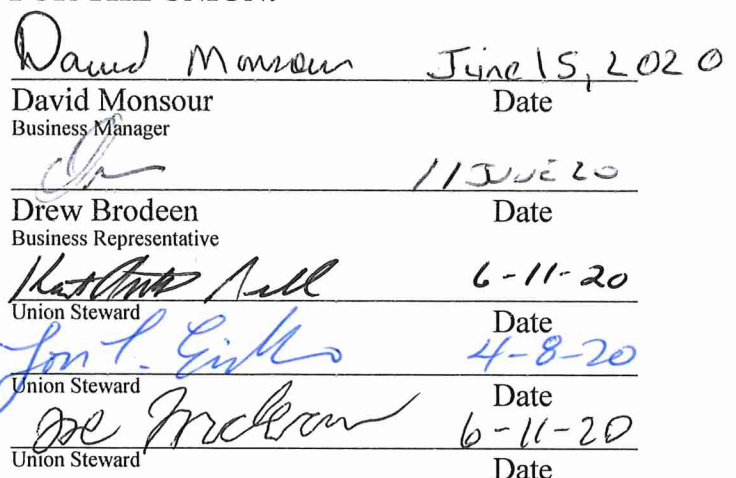 FOR THE UNION:
David Monsour June 15, 2020
David Monsour Date
Business Manager
11 JUNE 20
Drew Brodeen Date
Business Representative
6-11-20
Union Steward Date
4-8-20
Union Steward Date
Joe 6-11-20
Union Steward Date